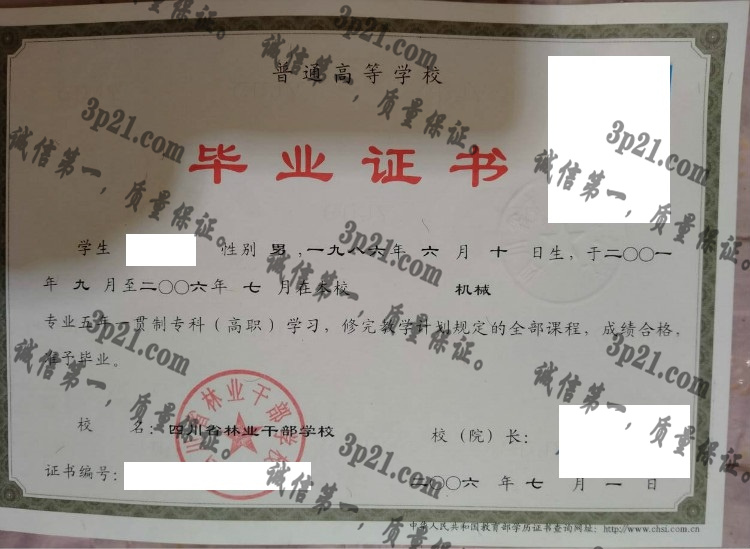 普通高等学校
毕业证书
学生 性别 男 ,一九八六年 六 月 十 日生, 于二〇〇一
年 九 月至二〇〇六年 七 月在本校 机械
专业五年一贯制专科(高职)学习, 修完教学计划规定的全部课程, 成绩合格,
准予毕业。
校 名: 四川省林业干部学校
校(院)长:
证书编号:
二〇〇六 年 七 月 一 日
中华人民共和国教育部学历证书查询网址: http://www.chsi.com.cn
四川省林业干部学校
3p21.com
诚信第一,质量保证。
3p21.com
诚信第一,质量保证。
3p21.com
诚信第一,质量保证。
3p21.com
诚信第一,质量保证。
3p21.com
诚信第一,质量保证。
3p21.com
诚信第一,质量保证。
3p21.com
诚信第一,质量保证。
3p21.com
诚信第一,质量保证。